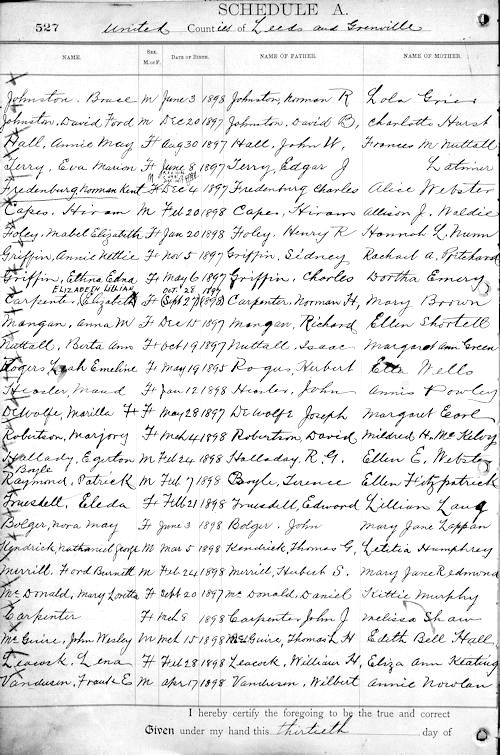 SCHEDULE A.
527 United Counties of Leeds and Grenville
NAME. SEX. M. or F. DATE OF BIRTH. NAME OF FATHER. NAME OF MOTHER.
Johnston, Bruce M June 3 1898 Johnston, Norman R Lola Grier
Johnston, David Ford M Dec 20 1897 Johnston, David B, Charlotte Hurst
Hall, Annie May F Aug 30 1897 Hall, John W, Frances M Nuttall
Terry, Eva Marion F June 8 1897 Terry, Edgar J Latimer
Fredenburg, Norman Kent F Dec 4 1897 Fredenburg Charles Alice Webster
Capes, Hiram M Feb 20 1898 Capes, Hiram Allison J. Waldie
Foley, Mabel Elizabeth F Jan 20 1898 Foley, Henry R Hannah L. Nunn
Griffin, Annie Nettie F Nov 5 1897 Griffin, Sidney Rachael A, Pritchard
Griffin, Ethena Edna F May 6 1897 Griffin, Charles Dortha Emery
ELIZABETH LILLIAN OCT. 28 1897
Carpenter, (Elizabeth) F (Sept 27) (1898) Carpenter, Norman H, Mary Brown
Mangan, Anna M F Dec 15 1897 Mangan, Richard Ellen Shortell
Nuttall, Berta Ann F Oct 19 1897 Nuttall, Isaac Margaret Ann Green
Rogers, Leah Emeline F May 19 1895 Rogers, Hubert Etta Wells
Hesler, Maud F Jan 12 1898 Hesler, John Annis Powley
DeWolfe, Marilla F F May 28 1897 DeWolfe Joseph Margaret Earl
Robertson, Marjory F Mch 4 1898 Robertson, David Mildred H. McKelvy
Halladay, Egerton M Feb 24 1898 Halladay, R. G. Ellen E, Webster
Boyle
Raymond, Patrick M Feb 7 1898 Boyle, Terence Ellen Fitzpatrick
Truesdell, Eleda F Feb 21 1898 Truesdell, Edword Lillian Laug
Bolger, Nora May F June 3 1898 Bolger, John Mary Jane Lappan
Kendrick, Nathaniel George M Mar 5 1898 Kendrick, Thomas G, Letitia Humphrey
Merrill, Ford Burnett M Feb 24 1898 Merrill, Hubert S. Mary Jane Redmond
McDonald, Mary Loretta F Sept 20 1897 McDonald, Daniel Kittie Murphy
Carpenter F Mch 8 1898 Carpenter, John J Melissa Shaw
McGuire, John Wesley M Mch 15 1898 McGuire, Thomas H Edith Bell Hall
Leacock, Lena F Feb 28 1898 Leacock, William H, Eliza Ann Keating
Vandusen, Frank E M Apr 17 1898 Vandusen, Wilbert Annie Nowlan
I hereby certify the foregoing to be the true and correct
Given under my hand this thirtieth day of